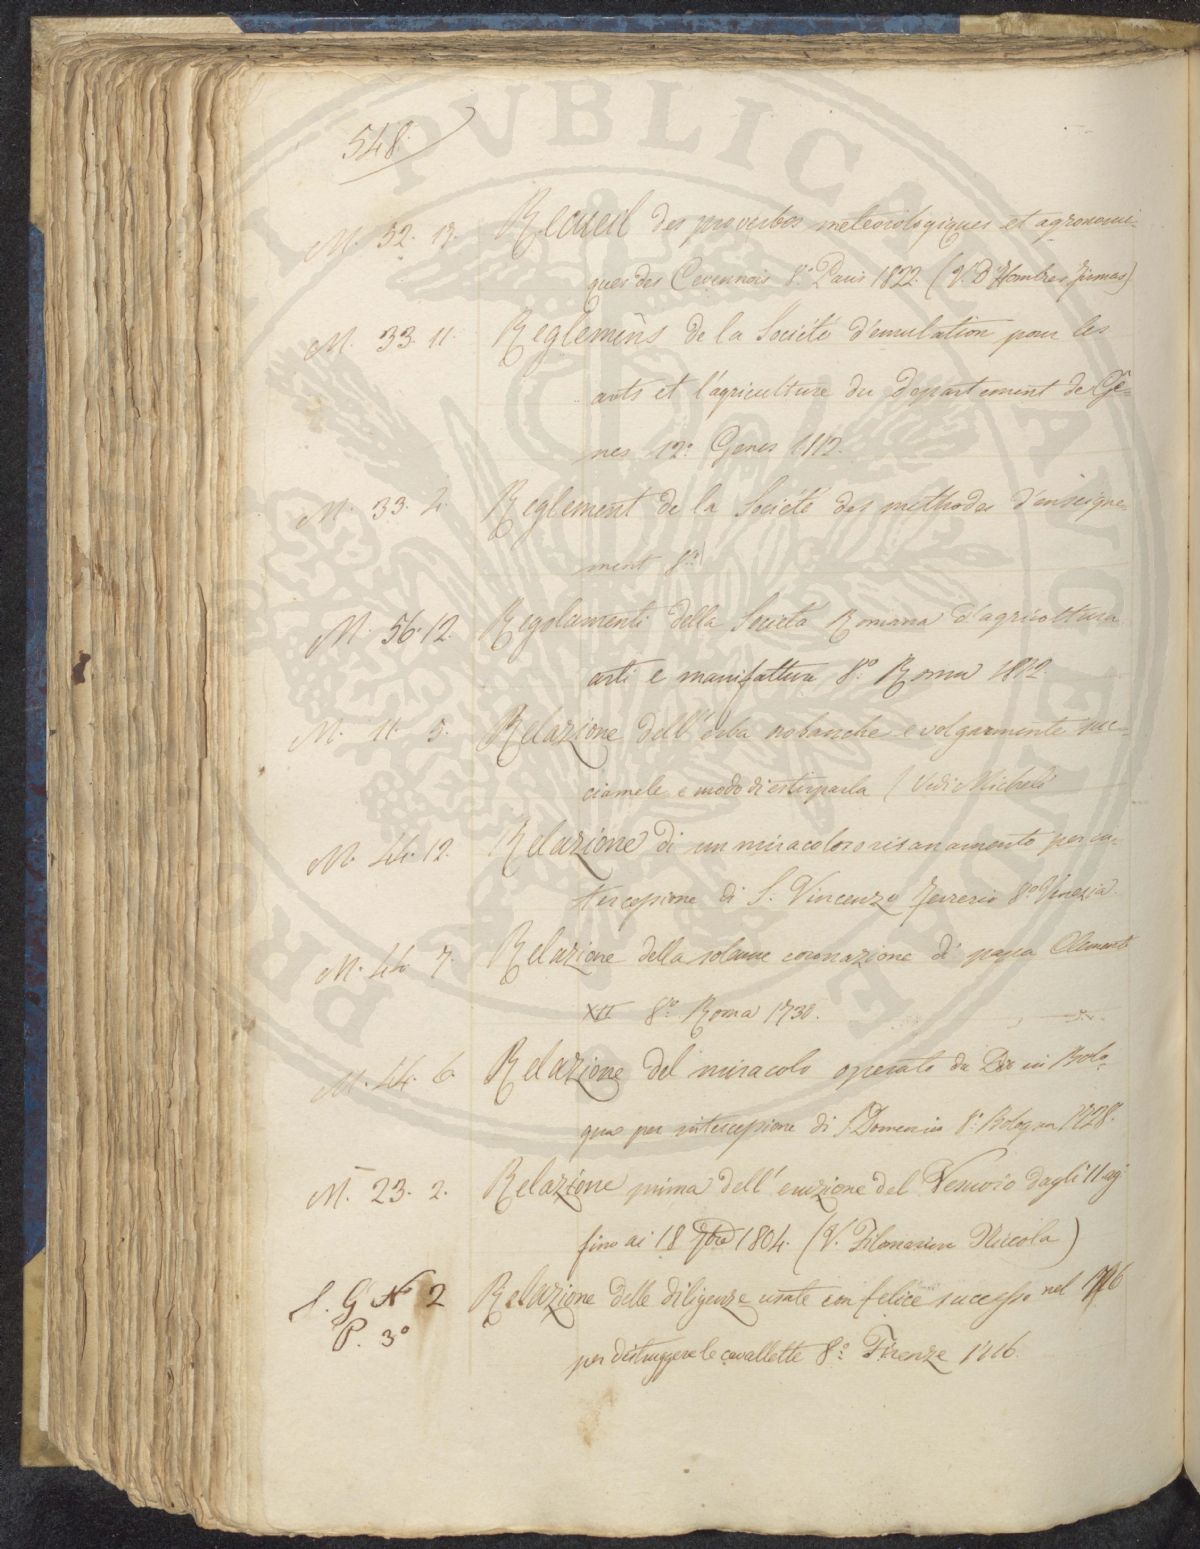 548.
M. 32. 13. Recueil des proverbes meteorologiques et agronomi-
ques des Cevennois 8.° Paris 1822. (V. D'Hombres Firmas)
M. 33. 11. Reglemens de la Société d'emulation pour les
arts et l'agriculture du departement de Gê-
nes 12.° Genes 1812.
M. 33. 4. Reglement de la Société des methodes d'enseigne-
ment 8.°
M. 56. 12. Regolamenti della Società Romana d'agricoltura
arti e manifatture 8.° Roma 1812.
M. 11. 5. Relazione dell'erba orobanche e volgarmente suc-
ciamele e modo di estirparla (Vedi Micheli
M. 44. 12. Relazione di un miracoloso risanamento per in-
tercepione di S. Vincenzo Ferrerio 8.° Venezia.
M. 44. 7. Relazione della solenne coronazione di papa Clemente
XII 8.° Roma 1730.
M. 44. 6. Relazione del miracolo operato da Dio in Bolo-
gna per intercepione di S. Domenico 8.° Bologna 1728.
M. 23. 2. Relazione prima dell'eruzione del Vesuvio dagli 11 ag.
fino ai 18 7bre 1804. (V. Filomarino Niccola)
S. G N.° 2 Relazione delle diligenze usate con felice successo nel 1716
P. 3.° per distruggere le cavallette 8.° Firenze 1716.
PRO PVBLICA